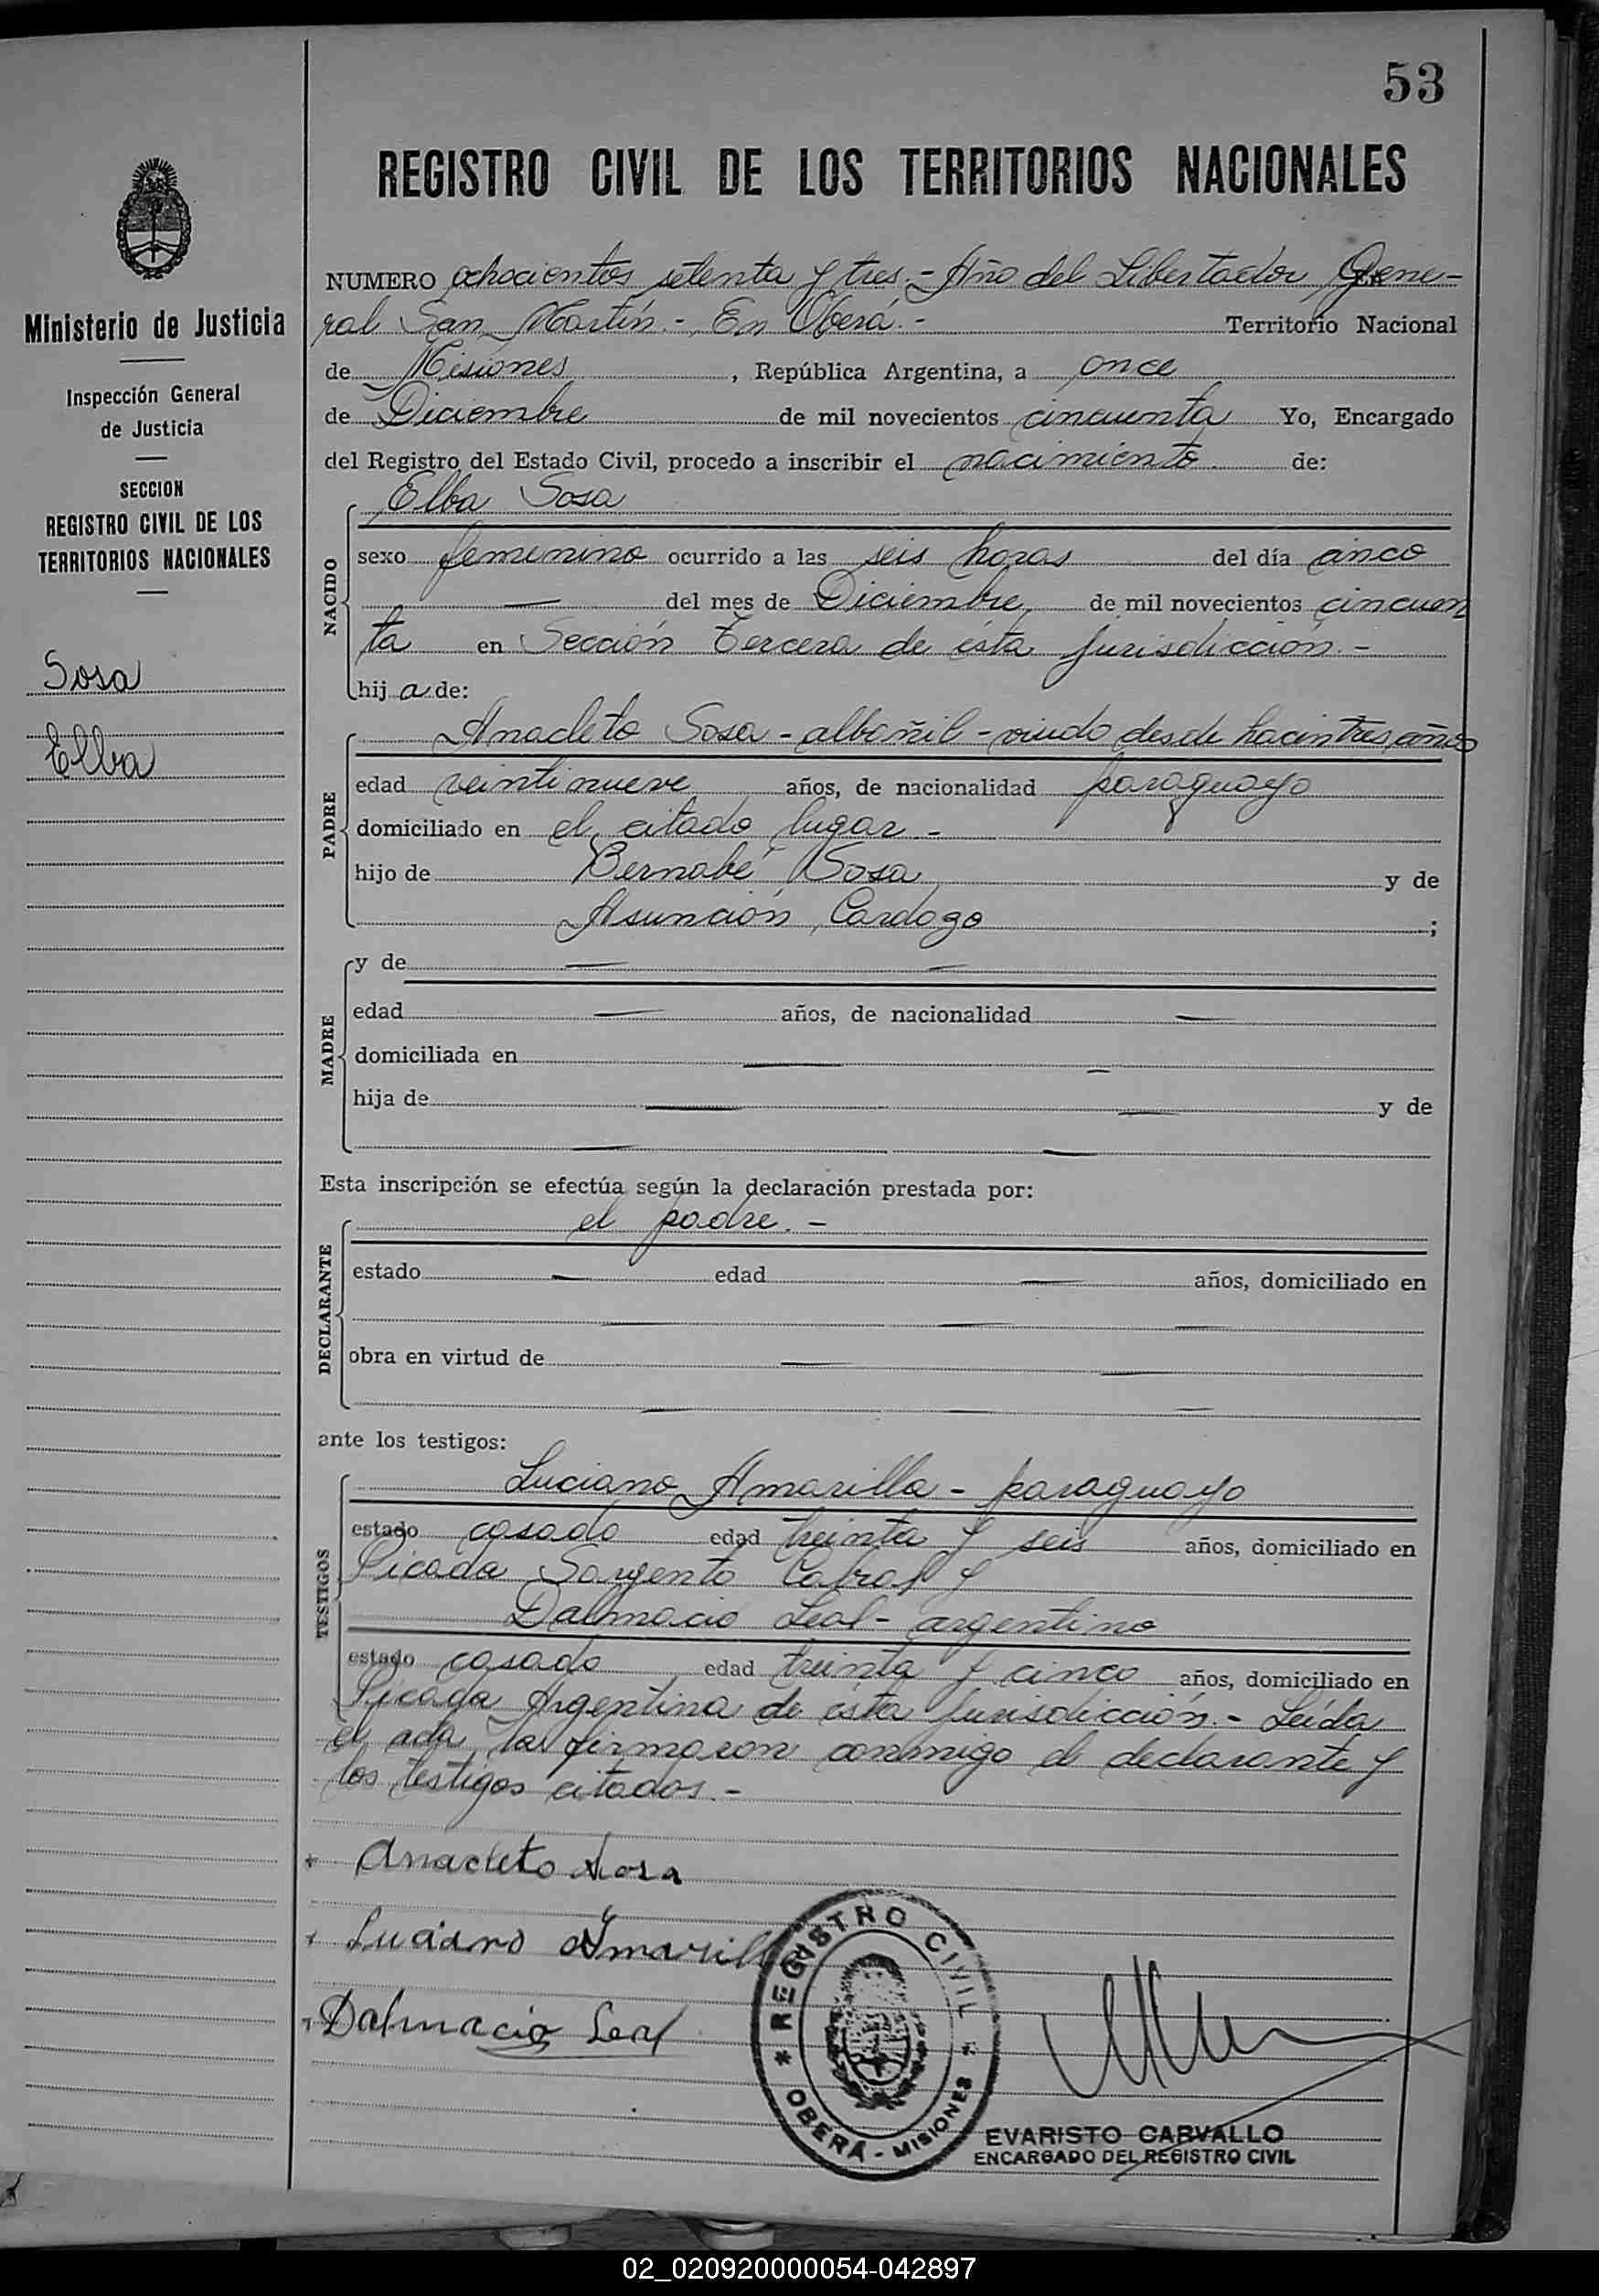 53
REGISTRO CIVIL DE LOS TERRITORIOS NACIONALES
Ministerio de Justicia
Inspección General
de Justicia
SECCION
REGISTRO CIVIL DE LOS
TERRITORIOS NACIONALES
Sosa
Elba
NUMERO ochocientos setenta y tres.- Año del Libertador Gene-
ral San Martín.- En Oberá.- Territorio Nacional
de Misiones, República Argentina, a once
de Diciembre de mil novecientos cincuenta Yo, Encargado
del Registro del Estado Civil, procedo a inscribir el nacimiento de:
NACIDO
Elba Sosa
sexo femenino ocurrido a las seis horas del día cinco
— del mes de Diciembre de mil novecientos cincuen
ta en Sección Tercera de ésta jurisdicción.-
hija de:
PADRE
Anacleto Sosa - albañil - viudo desde hacen tres años
edad veintinueve años, de nacionalidad paraguayo
domiciliado en el citado lugar.-
hijo de Bernabé Sosa y de
Asunción Cardozo ;
MADRE
y de — —
edad — años, de nacionalidad —
domiciliada en — —
hija de — — y de
— —
Esta inscripción se efectúa según la declaración prestada por:
DECLARANTE
el padre.-
estado — edad — años, domiciliado en
— — —
obra en virtud de — —
— — —
ante los testigos:
TESTIGOS
Luciano Amarilla - paraguayo
estado casado edad treinta y seis años, domiciliado en
Picada Sargento Cabral y
Dalmacio Leal - argentino
estado casado edad treinta y cinco años, domiciliado en
Picada Argentina de ésta jurisdicción.- Leída
el acta, la firmaron conmigo el declarante y
los testigos citados.-
+ Anacleto Sosa
+ Luciano Amarilla
+ Dalmacio Leal
* REGISTRO CIVIL *
OBERÁ - MISIONES
EVARISTO CARVALLO
ENCARGADO DEL REGISTRO CIVIL
02_020920000054-042897